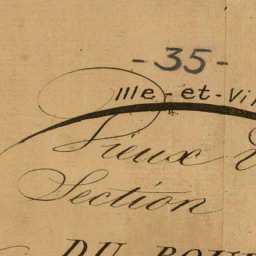 -35-
Ille-et-Vil
Vieux
Section
DU